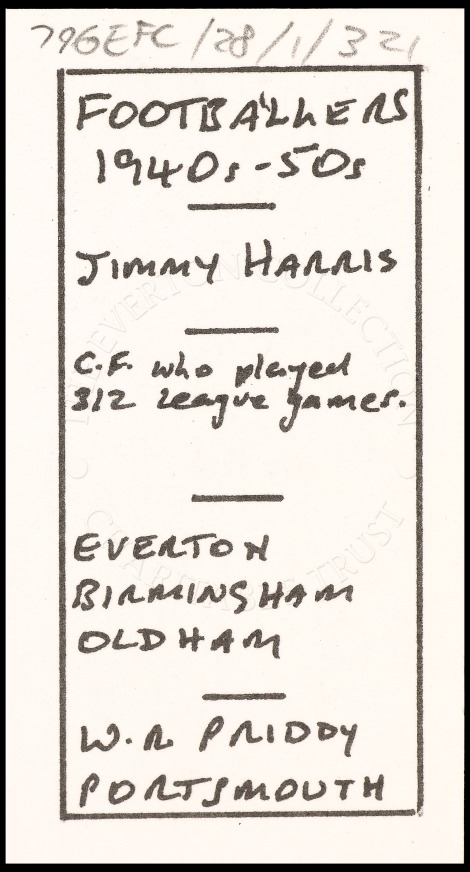 796EFC/28/1/321
FOOTBALLERS
1940s-50s
JIMMY HARRIS
C.F. who played
312 league games.
EVERTON
BIRMINGHAM
OLDHAM
W.R PRIDDY
PORTSMOUTH
THE EVERTON COLLECTION
CHARITABLE TRUST